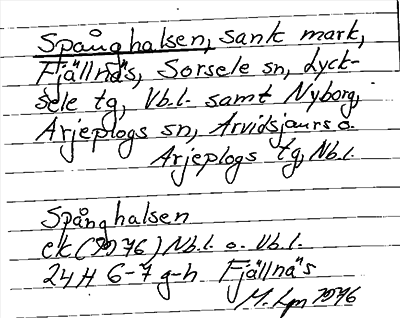 Spånghalsen, sank mark,
Fjällnäs, Sorsele sn, Lyck-
sele tg, Vb.l. samt Nyborg,
Arjeplogs sn, Arvidsjaurs o.
Arjeplogs tg, Nb.l.
Spånghalsen
ek (1976) Nb.l. o. Vb.l.
24H 6-7 g-h Fjällnäs
M. Lpm 1976